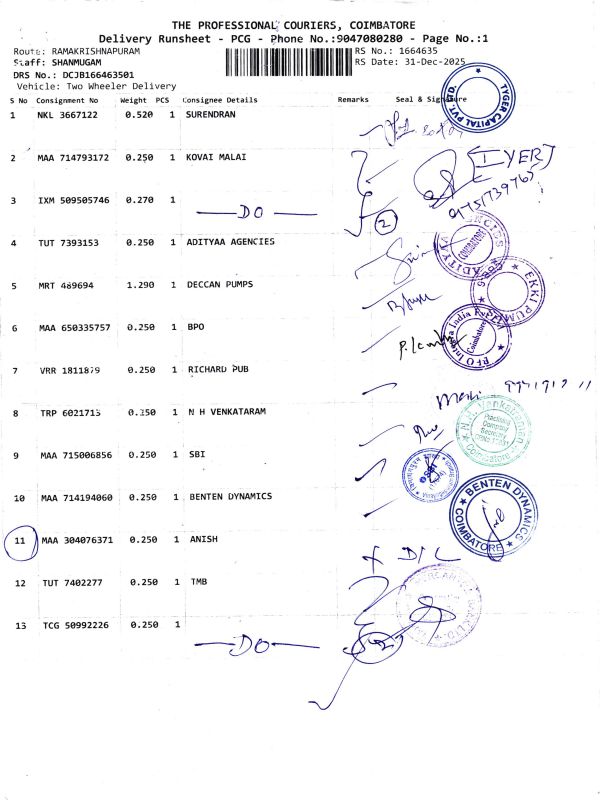 THE PROFESSIONAL COURIERS, COIMBATORE
Delivery Runsheet - PCG - Phone No.:9047080280 - Page No.:1
Route: RAMAKRISHNAPURAM
RS No.: 1664635
Staff: SHANMUGAM
RS Date: 31-Dec-2025
DRS No.: DCJB166463501
Vehicle: Two Wheeler Delivery
S No Consignment No Weight PCS Consignee Details Remarks Seal & Signature
TYGER CAPITAL PVT. LTD.
1 NKL 3667122 0.520 1 SURENDRAN
2 MAA 714793172 0.250 1 KOVAI MALAI
[IYER]
3 IXM 509505746 0.270 1
DO
2
4 TUT 7393153 0.250 1 ADITYAA AGENCIES
COIMBATORE
5 MRT 469694 1.290 1 DECCAN PUMPS
EKKI PUMPS
6 MAA 650335757 0.250 1 BPO
Coimbatore
7 VRR 1811879 0.250 1 RICHARD PUB
8 TRP 6021715 0.350 1 N H VENKATARAM
Practising
Company
Secretary
Coimbatore
9 MAA 715006856 0.250 1 SBI
10 MAA 714194060 0.250 1 BENTEN DYNAMICS
BENTEN DYNAMICS
COIMBATORE
11 MAA 304076371 0.250 1 ANISH
D/L
12 TUT 7402277 0.250 1 TMB
13 TCG 50992226 0.250 1
DO
2